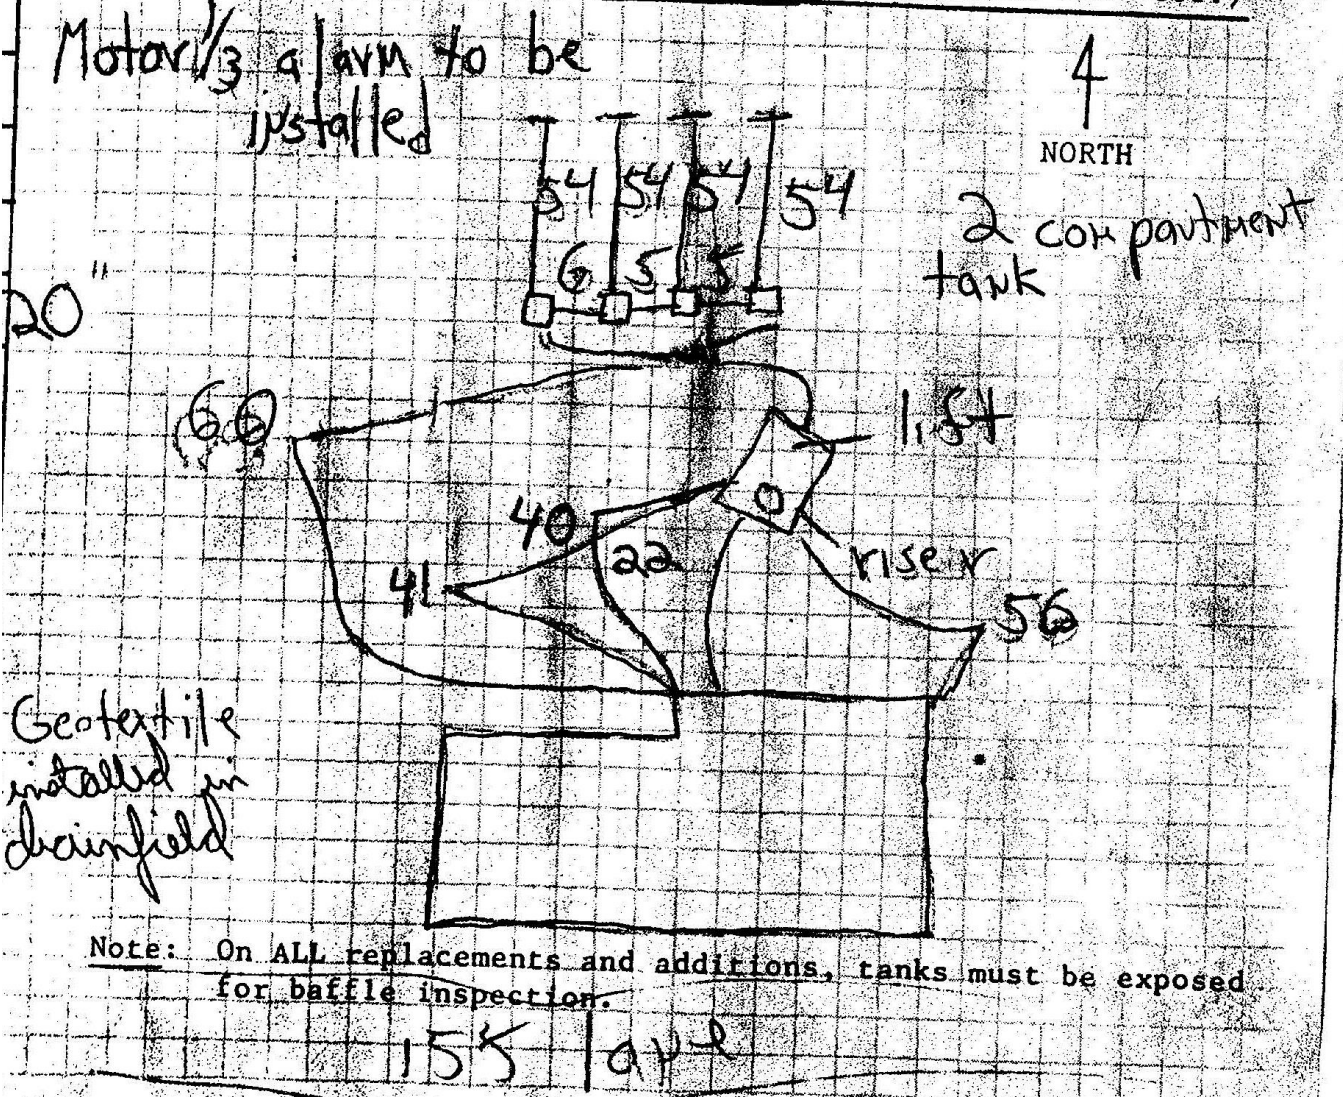 Motor 1/3 alarm to be
installed
4
NORTH
54 54 54 54
2 compartment
tank
6 5 5
20"
60
1.54
40
22
41
riser
56
Geotextile
installed in
drainfield
Note: On ALL replacements and additions, tanks must be exposed
for baffle inspection.
155 ave